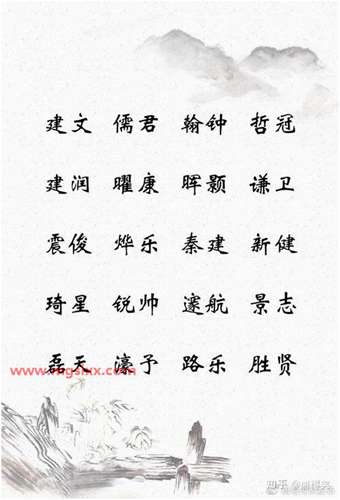 建文 儒君 翰钟 哲冠
建润 曜康 晖颢 谦卫
震俊 烨乐 秦建 新健
琦星 锐帅 邃航 景志
磊天 濠予 路乐 胜贤